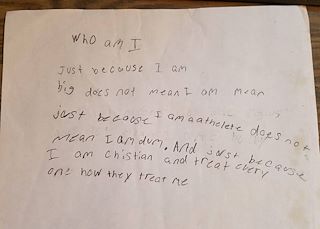 Who am I
Just because I am
big does not mean I am mean
just because I am a athelete does not
mean I am dum. And just because
I am chistian and treat every
one how they treat me